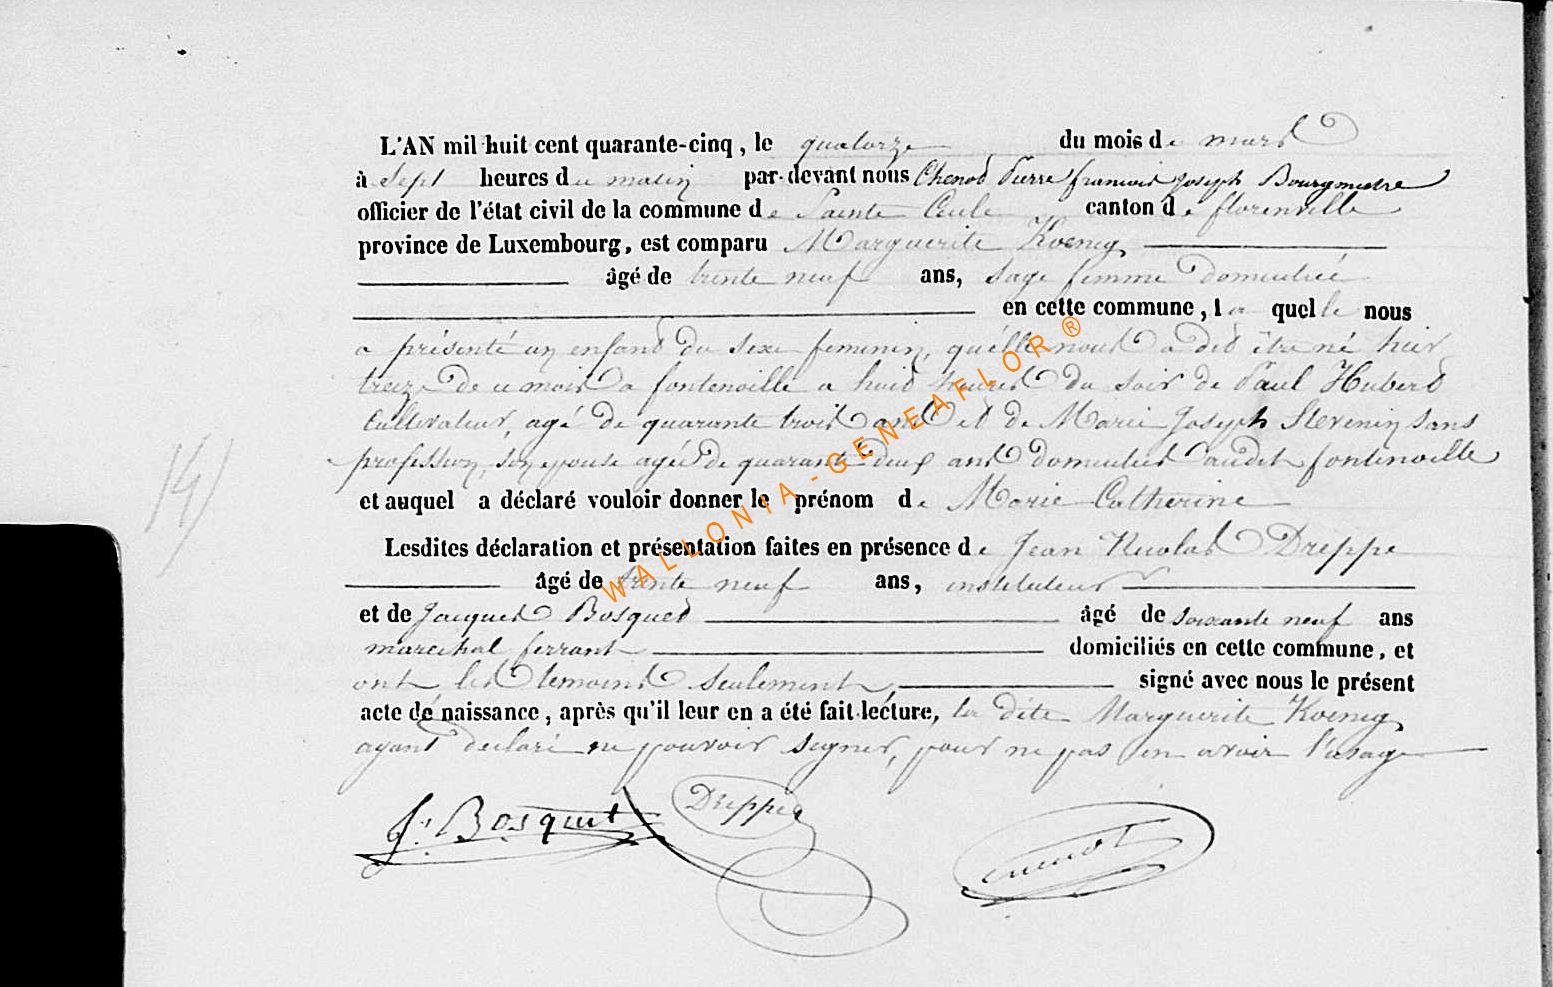 L'AN mil huit cent quarante-cinq, le quatorze du mois de mars
à sept heures du matin par-devant nous Chenot Pierre francois joseph Bourgmestre
officier de l'état civil de la commune de Sainte Cecile canton de florenville
province de Luxembourg, est comparu Marguerite Koenig
âgé de trente neuf ans, sage femme domiciliée
en cette commune, laquelle nous
a présenté un enfant du sexe feminin, quélle nous a dit être né hier
treize de ce mois a fontenoille a huit heures du soir de Paul Hubert
Cultivateur, agé de quarante trois ans et de Marie Joseph Stevenin sans
profession, son epouse agée de quarante deux ans domiciliés audit fontenoille
et auquel a déclaré vouloir donner le prénom de Marie Catherine
Lesdites déclaration et présentation faites en présence de Jean Nicolas Dreppe
âgé de trente neuf ans, instituteur
et de Jacques Bosquet âgé de soixante neuf ans
marechal ferrant domiciliés en cette commune, et
ont les temoins seulement, signé avec nous le présent
acte de naissance, après qu'il leur en a été fait lecture, la dite Marguerite Koenig
ayant declaré ne pouvoir signer, pour ne pas en avoir l'usage
J. Bosquet Dreppe Chenot
14
WALLONIA-GENEAFLOR ®